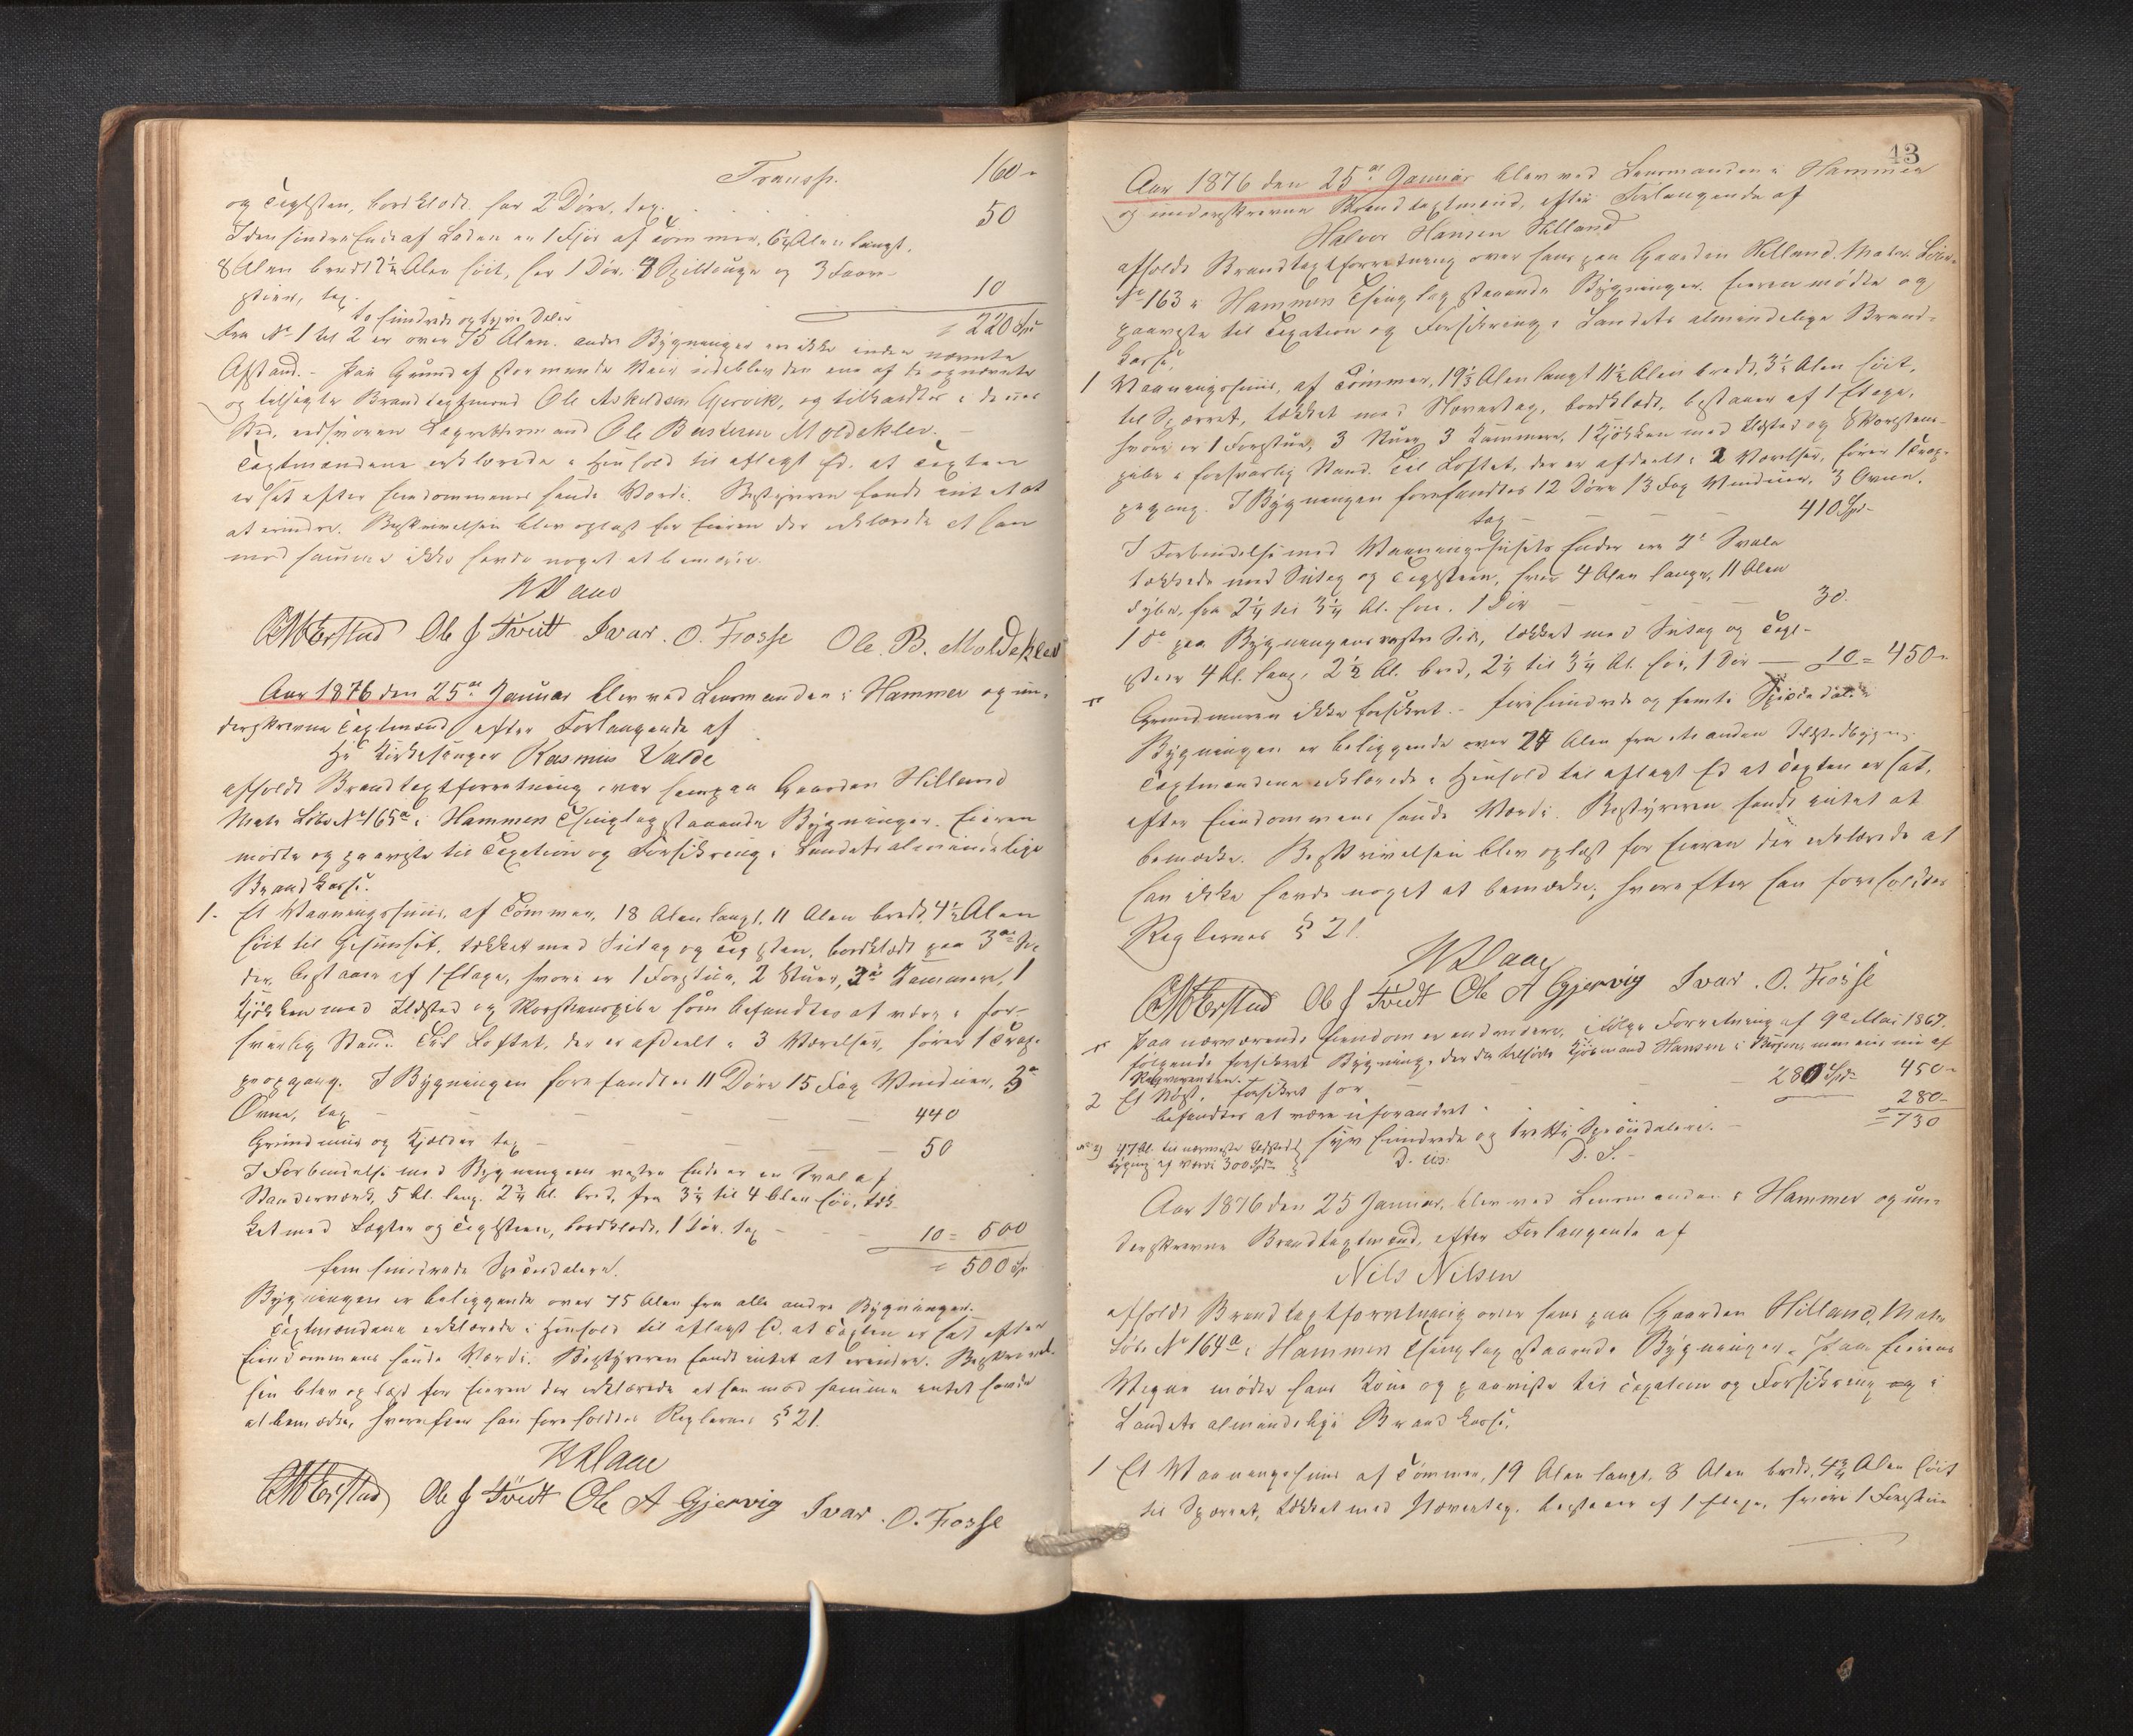 Transp. 160 "
og Teglsten, bordklædt har 2 Døre, tax. 50
I den søndre Ende af Laden er 1 Fjøs af Tømmer, 6½ Alen langt,
8 Alen bredt 2½ Alen høit, har 1 Dør, 8 Spilbauge og 3 Faare-
stier, tax. 10
to hundrede og tyve Daler = 220 Spd
Fra No 1 til 2 er over 75 Alen. andre Bygninger er ikke inden nævnte
Afstand. - Paa Grund af stormende Veir udeblev den ene af de opnævnte
og tilsagte Brandtaxtmænd Ole Askildsen Gjervik, og tiltraadte i dennes
Sted, edsvoren Lagrettesmand Ole Bastesen Moldeklev. -
Taxtmændene erklærede i Henhold til aflagt Ed, at Taxten
er sat efter Eiendommenes sande Værdi. Bestyreren fandt intet
at erindre. Beskrivelsen blev oplæst for Eieren der erklærede at han
mod samme ikke havde noget at bemærke.
Ole J Tveitt Ivar. O. Fosse Ole. B. Moldeklev
Aar 1876 den 25de Januar blev ved Lensmanden i Hammer og un-
derskrevne Taxtmænd efter Forlangende af
Hr Kirkesanger Rasmus Valde
afholdt Brandtaxtforretning over hans paa Gaarden Hilland
Matr Løbe No 165a i Hammers Thinglag staaende Bygninger. Eieren
mødte og paaviste til Taxation og Forsikring i Landets almindelige
Brandkasse.
1. Et Vaaningshuus, af Tømmer, 18 Alen langt, 11 Alen bredt, 4½ Alen
høit til Gesimset, tækket med Sutag og Teglsten, bordklædt paa 3de Si-
der, bestaaer af 1 Etage, hvori er 1 Forstue, 2 Stuer, 3de Kammere, 1
Kjøkken med Ildsted og Skorstenspibe som befandtes at være i for-
svarlig Stand. Til Loftet, der er afdeelt i 3 Værelser, fører 1 Trap-
peopgang. I Bygningen forefandtes 11 Døre 15 Fag Vinduer, 3de
Ovne, tax - - - - 440
Grundmuur og Kjælder tax - - - 50
I Forbindelse med Bygningens vestre Ende er en Sval af
Stænderværk, 5 Al. lang, 2¾ Al. bred, fra 3¼ til 4 Alen høi, tæk-
ket med Lægter og Teglsteen, bordklædt, 1 Dør, tax - - 10 = 500
fem hundrede Speciedalere. = 500 Sp
Bygningen er beliggende over 75 Alen fra alle andre Bygninger.
Taxtmændene erklærede i Henhold til aflagt Ed, at Taxten er sat efter
Eiendommens sande Værdi. Bestyreren fandt intet at erindre. Beskrivel-
sen blev oplæst for Eieren der erklærede at han mod samme intet havde
at bemærke, hvorefter han foreholdtes Reglernes § 21.
Ole J Tveitt Ole A Gjervig Ivar. O. Fosse
43
Aar 1876 den 25de Januar blev ved Lensmanden i Hammer
og underskrevne Brandtaxtmænd, efter Forlangende af
Halvor Hansen Hilland
afholdt Brandtaxtforretning over hans paa Gaarden Hilland Matr Løbe
No 163 i Hammers Thinglag staaende Bygninger. Eieren mødte og
paaviste til Taxation og Forsikring i Landets almindelige Brand-
kasse,
1 Vaaningshuus, af Tømmer, 19⅓ Alen langt 11½ Alen bredt, 3½ Alen høit,
til Sparret, tækket med Nævertag, bordklædt, bestaaer af 1 Etage,
hvori er 1 Forstue, 3 Stuer 3 Kammere, 1 Kjøkken med Ildsted og Skorstens-
pibe i forsvarlig Stand. Til Loftet, der er afdeelt i 2 Værelser, fører 1 Trap-
peopgang. I Bygningen forefandtes 12 Døre 13 Fag Vinduer, 3 Ovne,
tax - - - - 410 Spd -
I Forbindelse med Vaaningshusets Ender ere 2de Svale
tækkede med Sutag og Teglsteen, hver 4 Alen lange, 11 Alen
dybe, fra 2¼ til 3¼ Al. høi. 1 Dør - - - 30.
1 do paa Bygningens vestre Side, tækket med Sutag og Tegl-
steen 4 Al. lang, 2½ Al. bred, 2¼ til 3¼ Al. høi, 1 Dør — 10 = 450 "
Grundmuren ikke forsikret. - firehundrede og femti Speciedaler
Bygningen er beliggende over 24 Alen fra anden Ildstedbygn.
Taxtmændene erklærede i Henhold til aflagt Ed at Taxten er sat,
efter Eiendommens sande Værdi. Bestyreren fandt intet at
bemærke. Beskrivelsen blev oplæst for Eieren der erklærede at
han ikke havde noget at bemærke, hvorefter han foreholdtes
Reglernes § 21
Ole J Tveitt Ole A Gjervig Ivar. O. Fosse
Paa nærværende Eiendom er endvidere, ifølge Forretning af 9de Mai 1867.
følgende forsikret Bygning, der da tilhørte Kjøbmand Hansen i Bergen, men eies nu af
Reqvirenten.
2 Et Nøst, forsikret for - - - 280 Spd 450 "
befandtes at være uforandret 280 -
= 730
syv hundrede og tretti Speciedalere. -
No 2) 47 Al. til nærmeste Ildsted-
bygning af Værdi 300 Spd
D. S.
Aar 1876 den 25 Januar, blev ved Lensmanden i Hammer og un-
derskrevne Brandtaxtmænd, efter Forlangende af
Nils Nilsen
afholdt Brandtaxtforretning over hans paa Gaarden Hilland, Matr
Løbe No 164a i Hammers Thinglag staaende Bygninger. Paa Eierens
Vegne mødte hans Kone og paaviste til Taxation og Forsikring og i
Landets almindelige Brandkasse,
1 Et Vaaningshuus af Tømmer, 19 Alen langt, 8 Alen bredt, 4¾ Alen høit
til Sparret, tækket med Nævertag, bestaaer af 1 Etage, hvori 1 Forstue